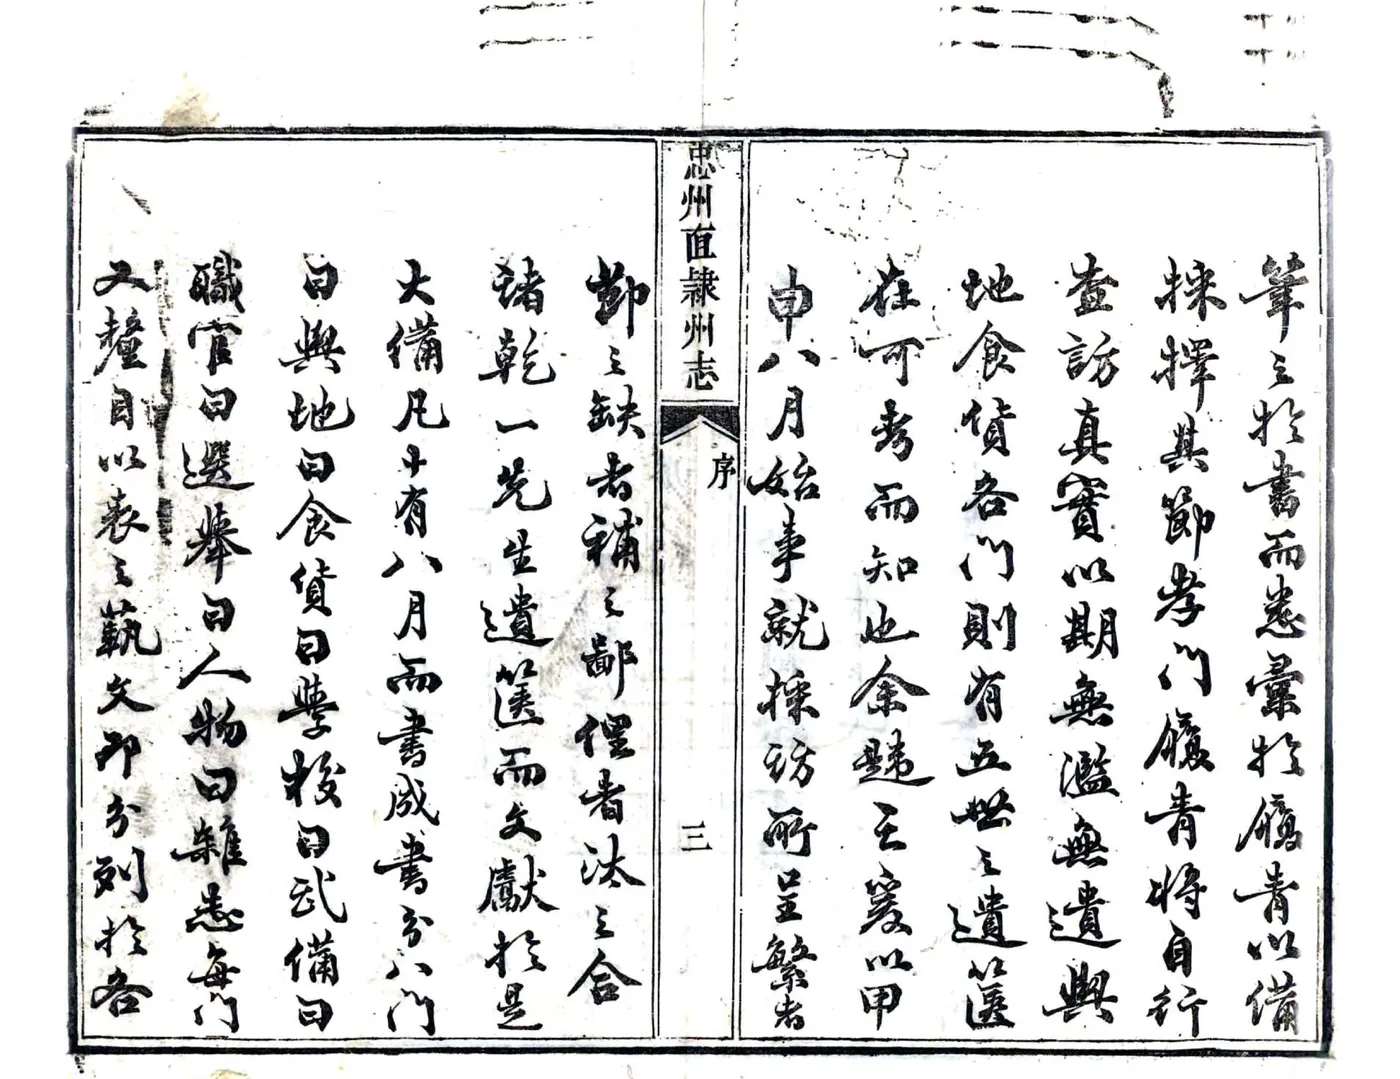 筆之於書而悉彙於牘青以備
採擇其節孝門牘青將自行
查訪真實以期無濫無遺輿
地食貨各門則有五世之遺篋
在可考而知也余韙之爰以甲
申八月始事就採訪所呈繁者
忠州直隸州志
序
三
節之缺者補之鄙俚者汰之合
諸乾一先生遺篋而文獻於是
大備凡十有八月而書成書分八門
曰輿地曰食貨曰學校曰武備曰
職官曰選舉曰人物曰雜志每門
又釐目以表之藝文即分列於各